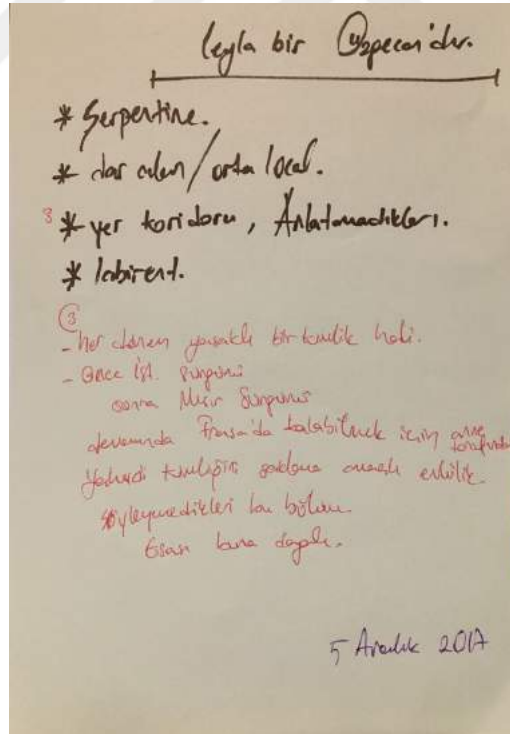 Leyla bir Özpecan'dır.
* Serpentine.
* dar alan / orta local.
3 * yer koridoru, Anlatamadıkları.
* labirent.
3
- her dönem yasaklı bir kimlik hali.
- Önce İst. Sürgünü
sonra Mısır Sürgünü
devamında Fransa'da kalabilmek için anne tarafından
Yahudi kimliğini saklama amaçlı evlilik.
söyleyemedikleri bu bölüm.
Esası buna dayalı.
5 Aralık 2017